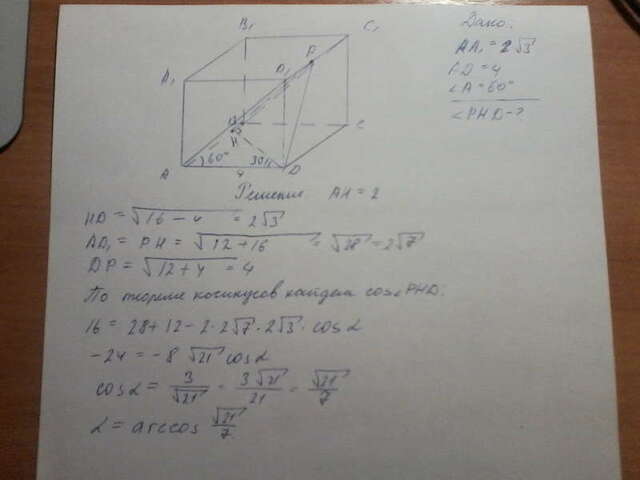 Дано:
AA₁ = 2√3
AD = 4
∠A = 60°
∠PHD - ?
B₁
C₁
P
A₁
D₁
B
H
C
A
60°
30°
4
D
Решение AH = 2
HD = √16 - 4 = 2√3
AD₁ = PH = √12 + 16 = √28 = 2√7
DP = √12 + 4 = 4
По теореме косинусов найдем cos∠PHD.
16 = 28 + 12 - 2 · 2√7 · 2√3 · cos α
-24 = -8 √21 cos α
cos α = 3/√21 = 3√21/21 = √21/7
α = arccos √21/7